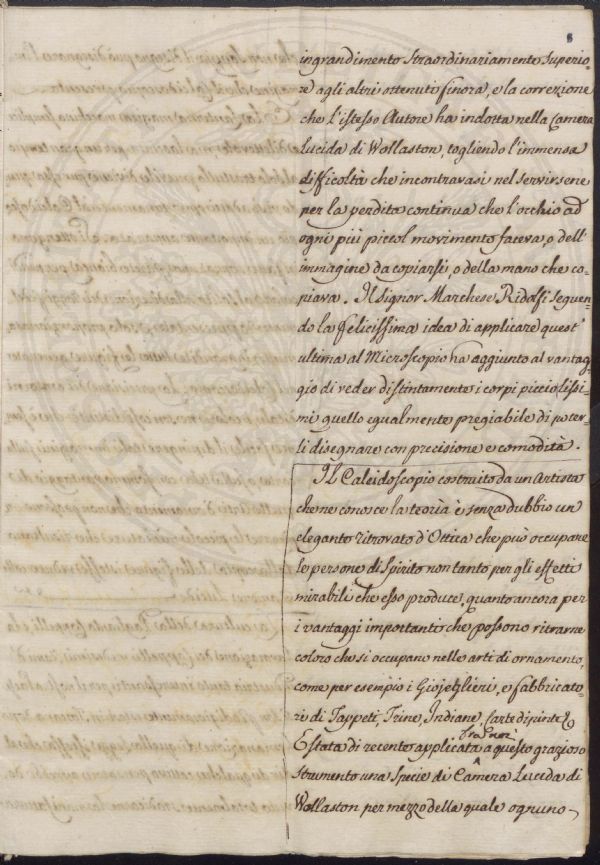 8
ingrandimento straordinariamente superio-
re agli altri ottenuti finora, e la correzione
che l'istesso Autore ha indotta nella Camera
Lucida di Wollaston, togliendo l'immensa
difficoltà che incontravasi nel servirsene
per la perdita continua che l'occhio ad
ogni più piccol movimento faceva, o dell'
immagine da copiarsi, o della mano che co-
piava. Il Signor Marchese Ridolfi seguen-
do la felicissima idea di applicare quest'
ultima al Microscopio ha aggiunto al vantag-
gio di veder distintamente i corpi picciolissi-
mi quello egualmente pregiabile di poter-
li disegnare con precisione e comodità.
Il Caleidoscopio costruito da un Artista
che ne conosce la teoria è senza dubbio un
elegante ritrovato d'Ottica che può occupare
le persone di Spirito non tanto per gli effetti
mirabili che esso produce, quanto ancora per
i vantaggi importanti che possono ritrarne
coloro che si occupano nelle arti di ornamento,
come per esempio i Giojeglieri, e fabbricato-
ri di Tappeti, Trine, Indiane, Carte dipinte &
È stata di recente applicata a questo grazioso
strumento una Specie di Camera Lucida di
Wollaston per mezzo della quale ognuno